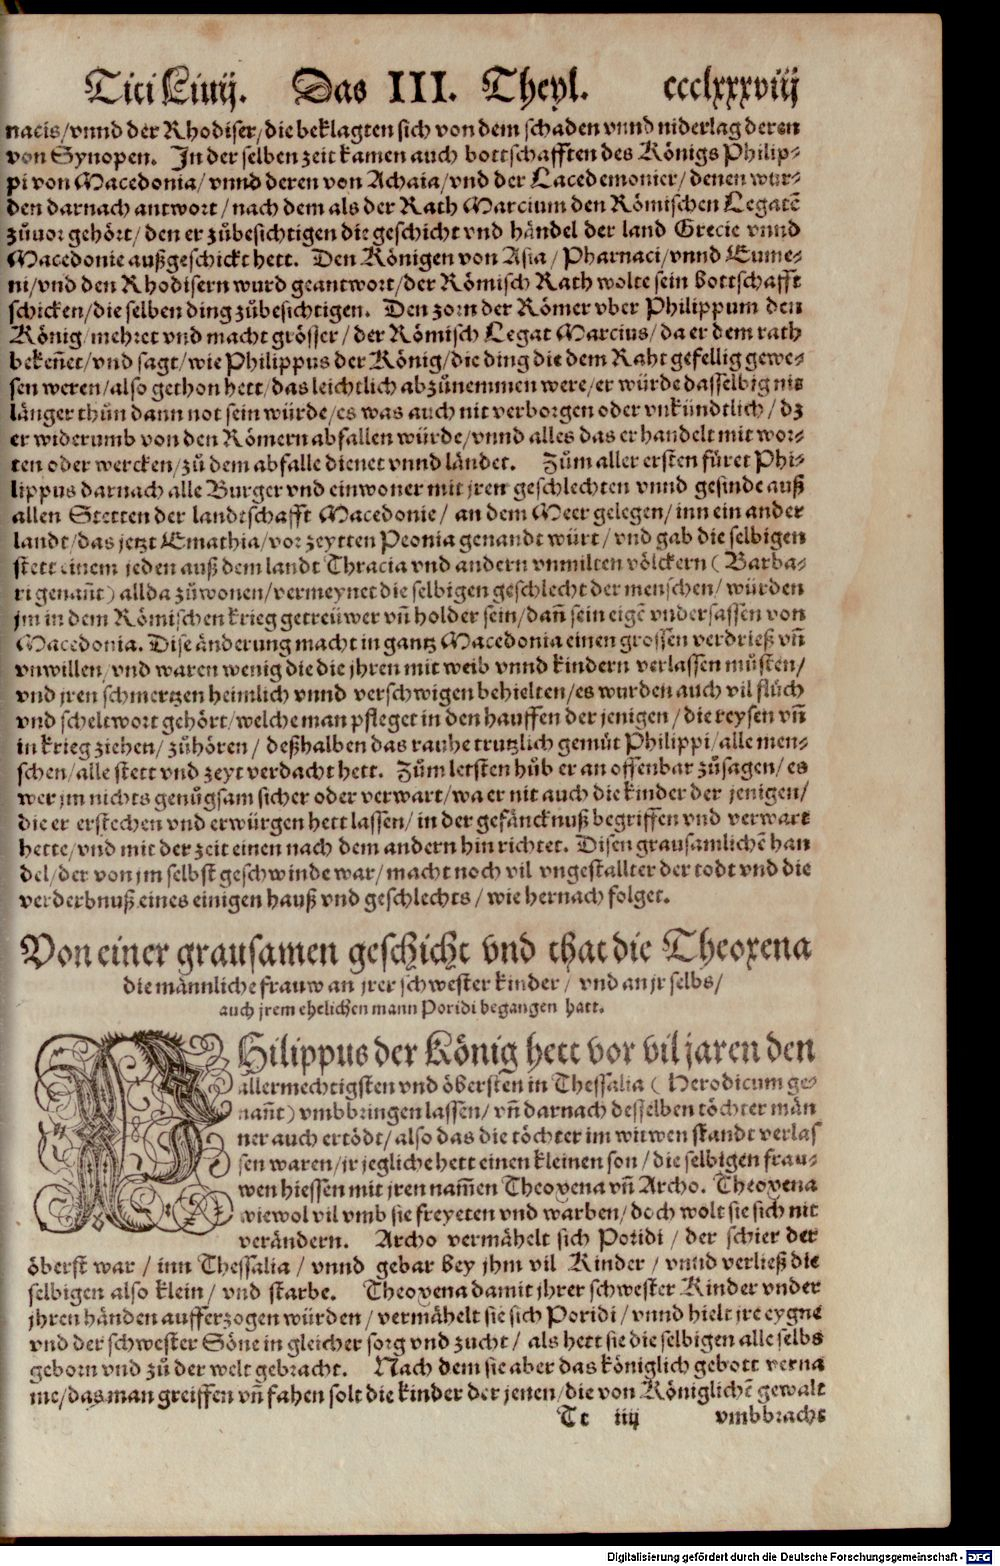 Titi Liuij. Das III. Theyl. ccclxxxviij
nacis/vnnd der Rhodiser/die beklagten sich von dem schaden vnnd niderlag deren
von Synopen. In der selben zeit kamen auch bottschafften des Königs Philip-
pi von Macedonia/vnnd deren von Achaia/vnd der Lacedemonier/denen wur-
den darnach antwort/nach dem als der Rath Marcium den Römischen Legatē
zůuor gehört/den er zůbesichtigen die geschicht vnd händel der land Grecie vnnd
Macedonie außgeschickt hett. Den Königen von Asia/Pharnaci/vnnd Eume-
ni/vnd den Rhodisern wurd geantwort/der Römisch Rath wolte sein bottschafft
schicken/die selben ding zůbesichtigen. Den zorn der Römer vber Philippum den
König/mehret vnd macht grösser/der Römisch Legat Marcius/da er dem rath
bekeñet/vnd sagt/wie Philippus der König/die ding die dem Raht gefellig gewe-
sen weren/also gethon hett/das leichtlich abzůnemmen were/er würde dasselbig nit
länger thůn dann not sein würde/es was auch nit verborgen oder vnkündtlich/dz
er widerumb von den Römern abfallen würde/vnnd alles das er handelt mit wor-
ten oder wercken/zů dem abfalle dienet vnnd ländet. Zům aller ersten füret Phi-
lippus darnach alle Burger vnd einwoner mit jren geschlechten vnnd gesinde auß
allen Stetten der landtschafft Macedonie/an dem Meer gelegen/inn ein ander
landt/das jetzt Emathia/vor zeytten Peonia genandt würt/vnd gab die selbigen
stett einem jeden auß dem landt Thracia vnd andern vnmilten völckern (Barba-
ri genañt) allda zůwonen/vermeynet die selbigen geschlecht der menschen/würden
jm in dem Römischen krieg getreüwer vñ holder sein/dañ sein eigē vndersassen von
Macedonia. Dise änderung macht in gantz Macedonia einen grossen verdrieß vñ
vnwillen/vnd waren wenig die die jhren mit weib vnnd kindern verlassen můsten/
vnd jren schmertzen heimlich vnnd verschwigen behielten/es wurden auch vil flůch
vnd scheltwort gehört/welche man pfleget in den hauffen der jenigen/die reysen vñ
in krieg ziehen/zůhören/deßhalben das rauhe trutzlich gemüt Philippi/alle men-
schen/alle stett vnd zeyt verdacht hett. Zům letsten hůb er an offenbar zůsagen/es
wer jm nichts genůgsam sicher oder verwart/wa er nit auch die kinder der jenigen/
die er erstechen vnd erwürgen hett lassen/in der gefäncknuß begriffen vnd verwart
hette/vnd mit der zeit einen nach dem andern hin richtet. Disen grausamlichē han
del/der von jm selbst geschwinde war/macht noch vil vngestallter der todt vnd die
verderbnuß eines einigen hauß vnd geschlechts/wie hernach folget.
Von einer grausamen geschicht vnd that die Theoxena
die männliche frauw an jrer schwester kinder/vnd an jr selbs/
auch jrem ehelichen mann Poridi begangen hatt.
PHilippus der König hett vor vil jaren den
allermechtigsten vnd öbersten in Thessalia (Herodicum ge-
nañt) vmbbringen lassen/vñ darnach desselben töchter män
ner auch ertödt/also das die töchter im witwen standt verlas
sen waren/jr jegliche hett einen kleinen son/die selbigen frau-
wen hiessen mit jren nam̄en Theoxena vñ Archo. Theoxena
wiewol vil vmb sie freyeten vnd warben/doch wolt sie sich nit
verändern. Archo vermähelt sich Poridi/der schier der
öberst war/inn Thessalia/vnnd gebar bey jhm vil Kinder/vnnd verließ die
selbigen also klein/vnd starbe. Theoxena damit jhrer schwester Kinder vnder
jhren händen aufferzogen würden/vermähelt sie sich Poridi/vnnd hielt jre eygne
vnd der schwester Söne in gleicher sorg vnd zucht/als hett sie die selbigen alle selbs
geborn vnd zů der welt gebracht. Nach dem sie aber das königlich gebott verna
me/das man greiffen vñ fahen solt die kinder der jenen/die von Königlichē gewalt
Tt iiij vmbbracht
Digitalisierung gefördert durch die Deutsche Forschungsgemeinschaft - DFG